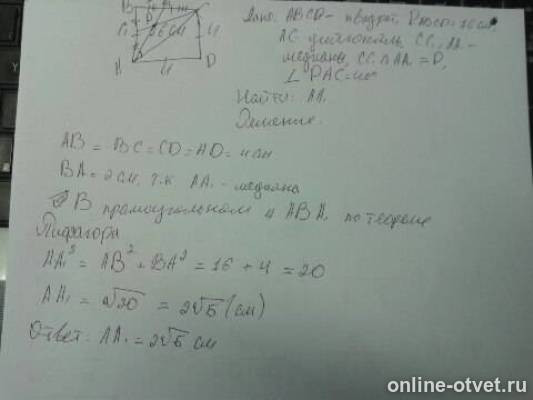 Дано: ABCD - квадрат, PABCD = 16 см,
AC - диагональ, CC₁, AA₁ -
медианы, CC₁ ∩ AA₁ = P,
∠ PAC =
Найти: AA₁
Решение.
B
C
A
D
4
4
AB = BC = CD = AD = 4 см
BA₁ = 2 см, т.к. AA₁ - медиана
В прямоугольном △ ABA₁ по теореме
Пифагора
AA₁² = AB² + BA² = 16 + 4 = 20
AA₁ = √20 = 2√5 (см)
Ответ: AA₁ = 2√5 см
online-otvet.ru